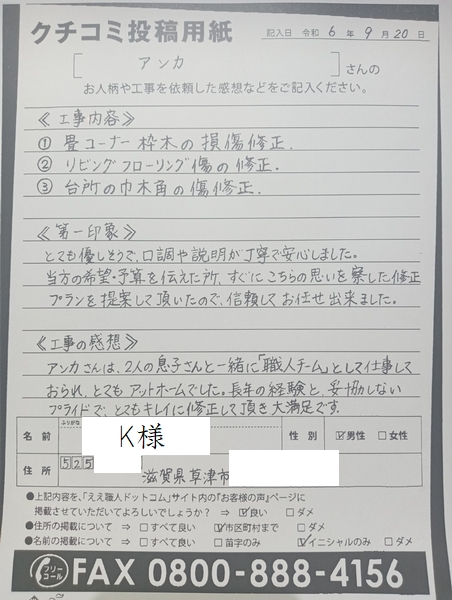 クチコミ投稿用紙
記入日 令和 6年 9月 20日
[ アンカ ]さんの
お人柄や工事を依頼した感想などをご記入ください。
≪工事内容≫
① 畳コーナー枠木の損傷修正.
② リビングフローリング傷の修正.
③ 台所の巾木角の傷修正.
≪第一印象≫
とても優しそうで、口調や説明が丁寧で安心しました。
当方の希望・予算を伝えた所、すぐにこちらの思いを察した修正
プランを提案して頂いたので、信頼してお任せ出来ました。
≪工事の感想≫
アンカさんは、2人の息子さんと一緒に「職人チーム」として仕事して
おられ、とてもアットホームでした。長年の経験と、妥協しない
プライドで、とてもキレイに修正して頂き大満足です。
ふりがな
名前 K様 性別 ☑男性 □女性
住所 525 滋賀県草津市
●上記内容を、「ええ職人ドットコム」サイト内の「お客様の声」ページに
掲載させていただいてよろしいでしょうか? ⇒ ☑良い □ダメ
●住所の掲載について ⇒ □すべて良い ☑市区町村まで □ダメ
●名前の掲載について ⇒ □すべて良い □苗字のみ ☑イニシャルのみ □ダメ
フリーコール FAX 0800-888-4156